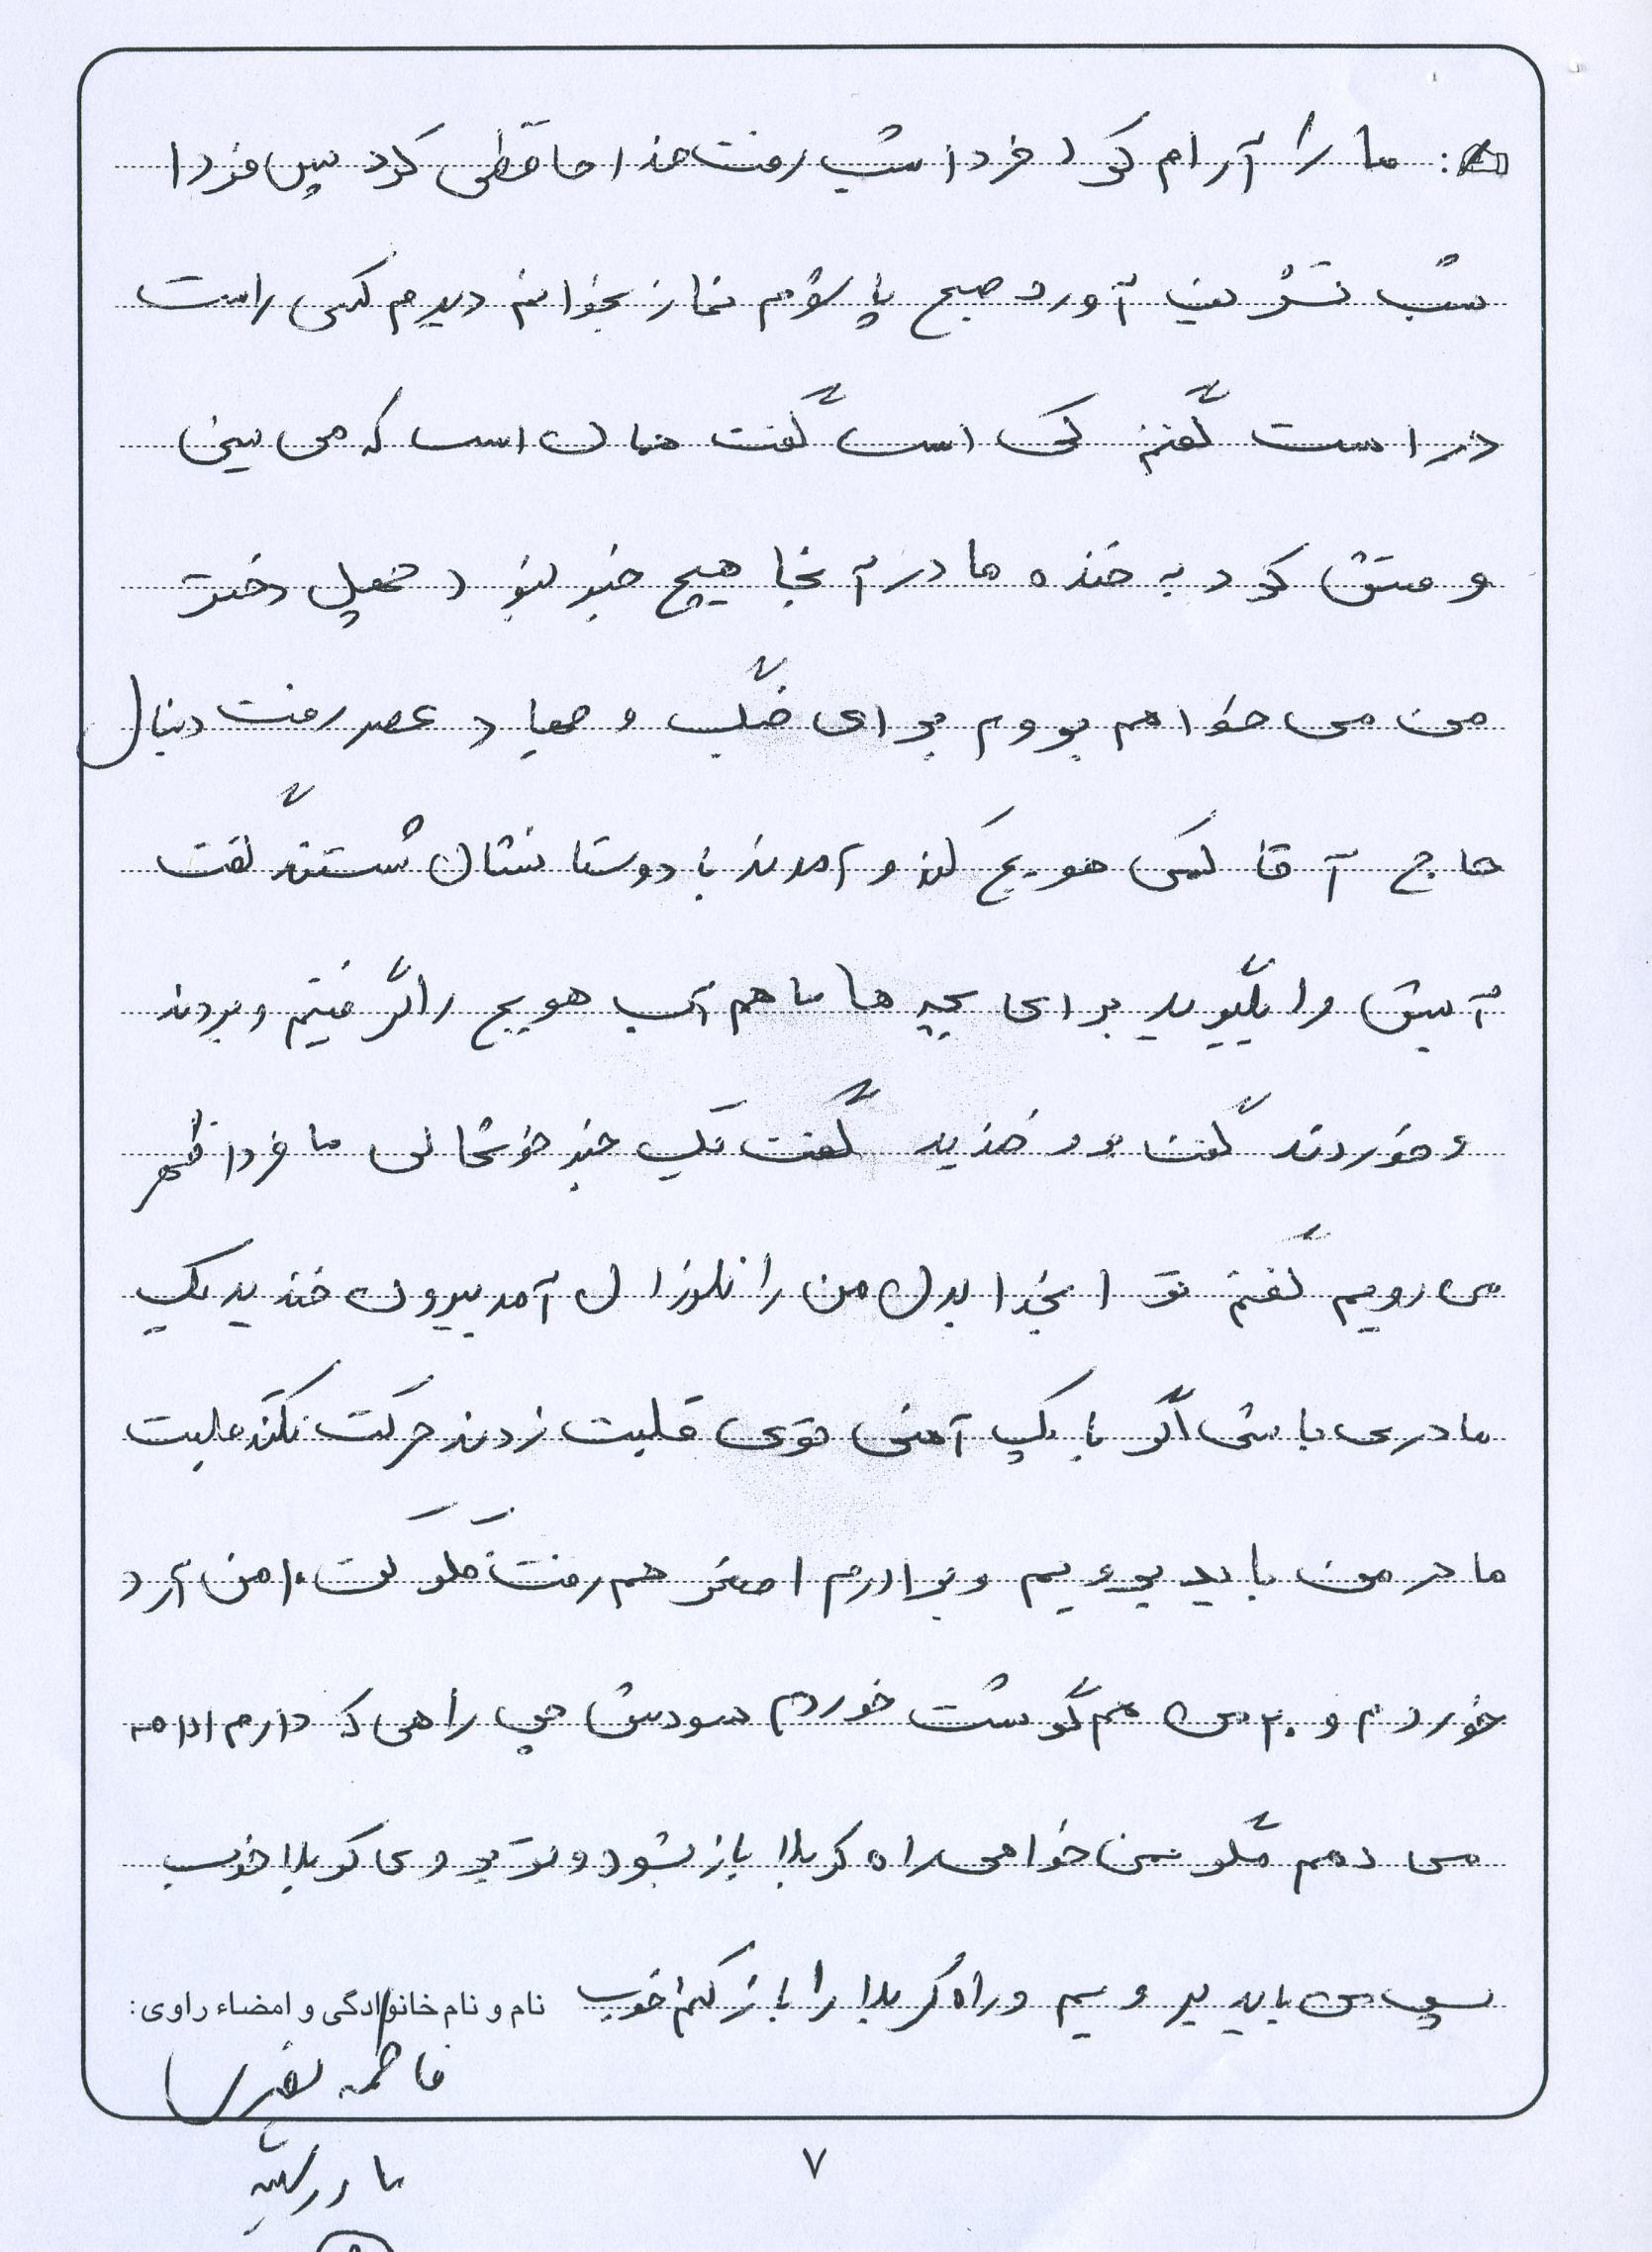 ما را آرام کرد فردا شب رفت خدا حافظی کرد پس فردا
شب تشریف آورد صبح پا شوم نماز بخوانم دیدم کسی راست
در است گفتم کی است گفت همان است که می بینی
و مشق کرد به خنده ما در آنجا هیچ خبر نبود دختر
من می خواهم بروم برای و عصر رفت دنبال
حاج آقا هویج کند و آمدند با دوستانشان شستند گفت
آبش را بگیرید برای بچه ها ما هم آب هویج را گرفتیم و بردند
و خوردند گفت خندید گفت یک خبر خوشحالی ما فردا ظهر
می رویم گفتم تو را بخدا بدل من را نلرزان آمد بیرون خندید یک
مادری باشی اگر با یک آهنی توی قلبت زدند حرکت نکند
مادر من باید برویم و برادرم اصغر هم رفت مگو من آرد
خوردم و ۲۰ من هم گوشت خوردم سودش چی راهی که دارم ادامه
می دهم مگو نمی خواهی راه کربلا باز بشود و تو بروی کربلا خوب
پس من باید برویم و راه کربلا را باز کنم خوب
نام و نام خانوادگی و امضاء راوی:
فاطمه
مادر
۷